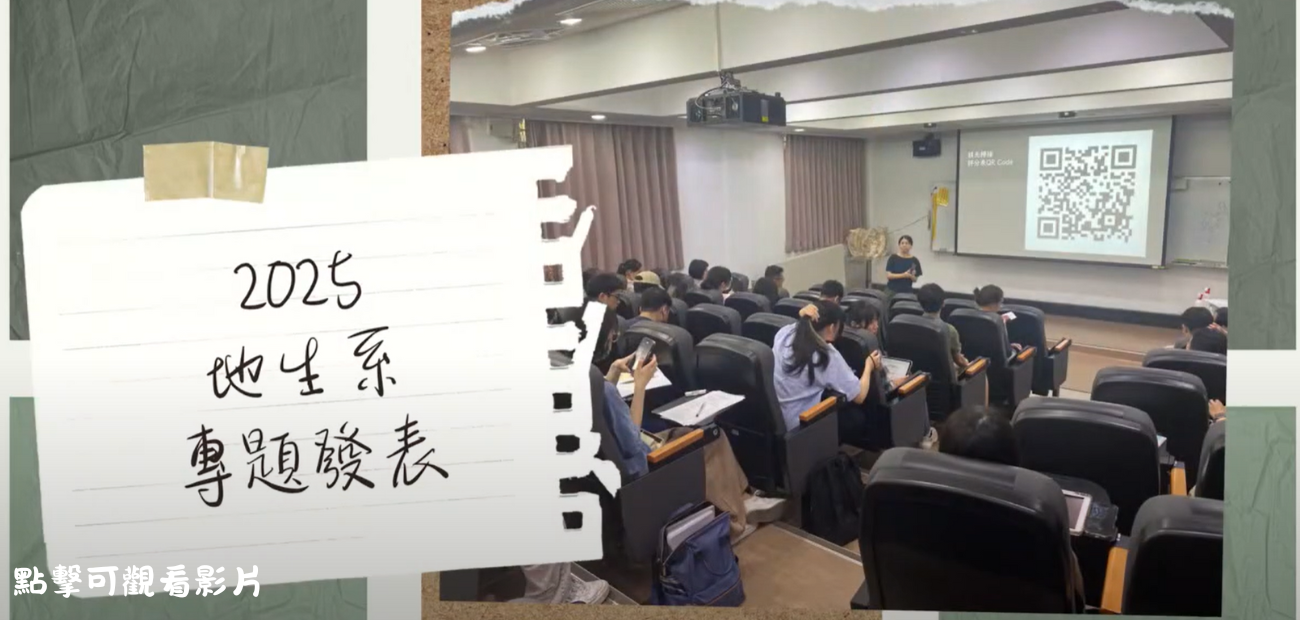 2025
地生系
專題發表
點擊可觀看影片
請先掃描
評分表QR Code